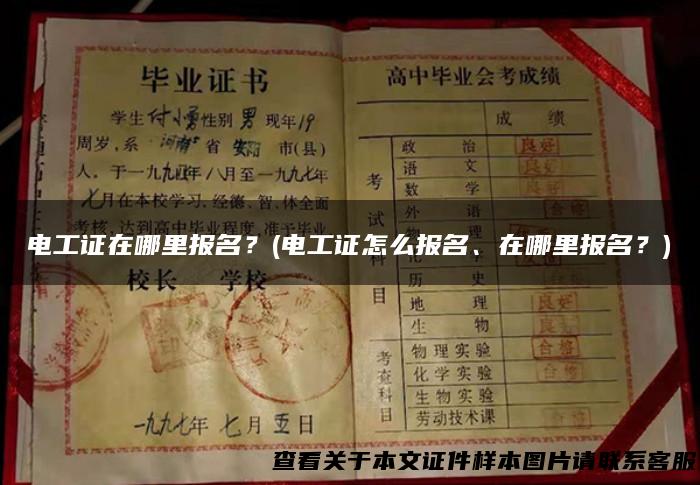 毕业证书
学生付小勇性别男现年19
周岁,系河南省安阳市(县)
人。于一九九四年八月至一九九七年
七月在本校学习,经德、智、体全面
考核,达到高中毕业程度,准于毕业
校长 学校
一九九七年七月五日
高中毕业会考成绩
成绩
考试科目
政治 良好
语文 良好
数学 良好
外语 合格
物理
历史 良好
地理 良好
生物 良好
考查科目
物理实验 合格
化学实验 合格
生物实验
劳动技术课 合格
电工证在哪里报名?(电工证怎么报名、在哪里报名?)
查看关于本文证件样本图片请联系客服